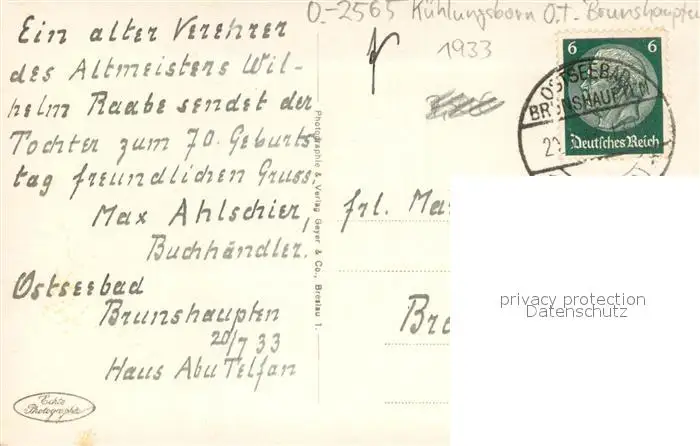 O.-2565 Kühlungsborn O.T. Brunshaupten
1933
Ein alter Verehrer
des Altmeisters Wil-
helm Raabe sendet der
Tochter zum 70. Geburts-
tag freundlichen Gruss.
Max Ahlschier,
Buchhändler.
Ostseebad
Brunshaupten
20/7 33
Haus Abu Telfan
Echte
Photographie
Photographie & Verlag Geyer & Co., Breslau 1.
6 6
Deutsches Reich
OSTSEEBAD
BRUNSHAUPTEN
frl. Mar
Bra
privacy protection
Datenschutz